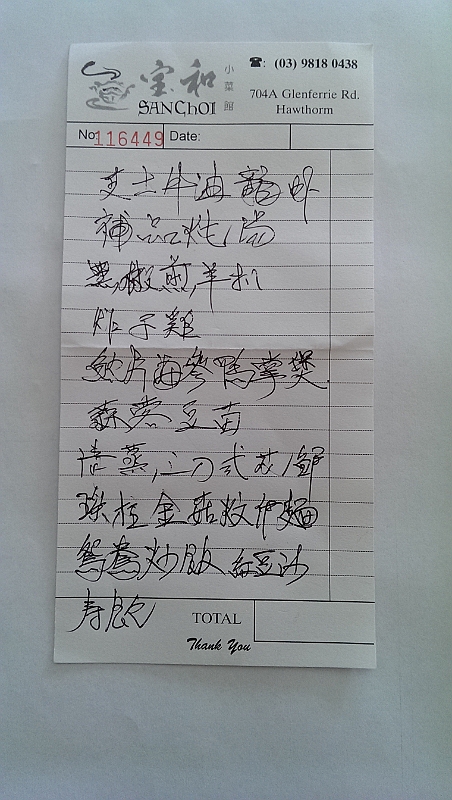 宝和
小菜館
SANCHOI
☎: (03) 9818 0438
704A Glenferrie Rd.
Hawthorm
No 116449 Date:
支士牛油龍
補品炖湯
黑椒煎羊扒
炸子雞
鮑片海參鴨掌煲
蒜蓉豆苗
清蒸
金菇炆伊麵
鴛鴦炒飯 紅豆沙
寿包
TOTAL
Thank You